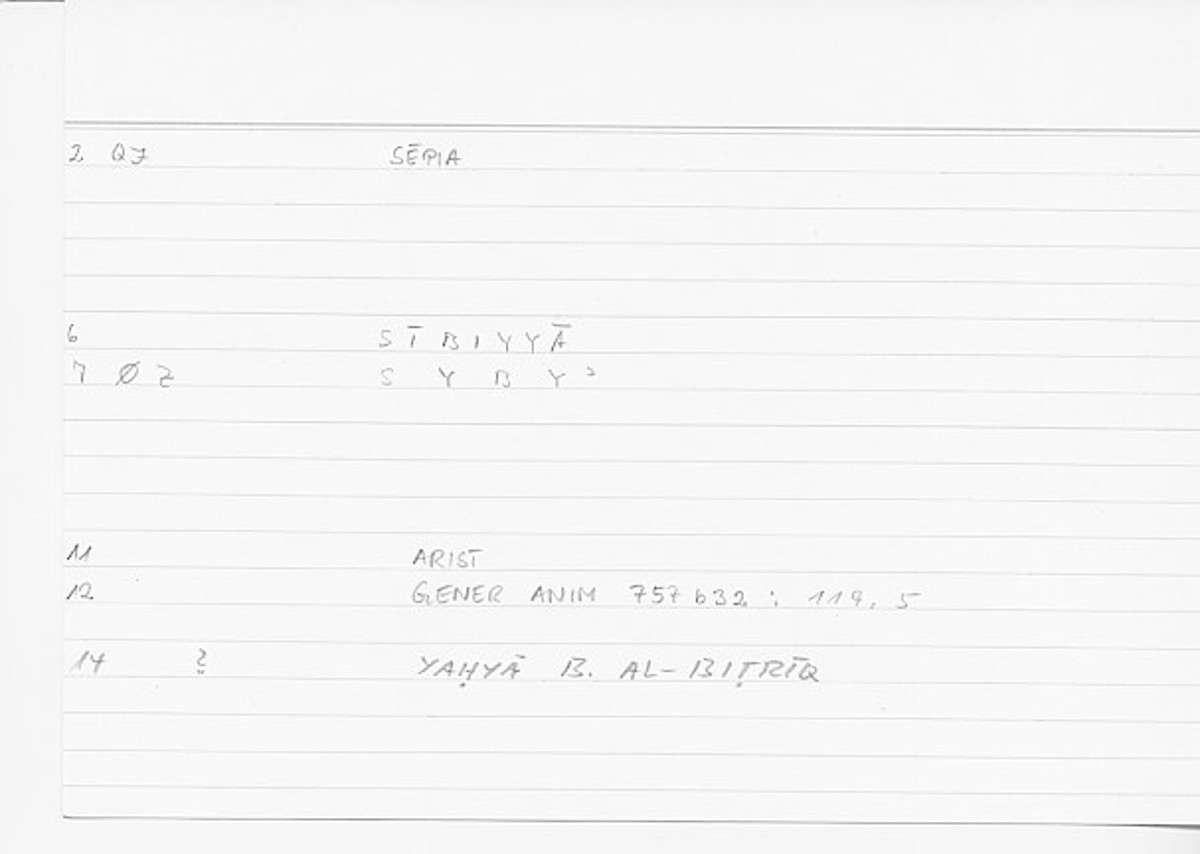 2 QJ SĒPIA
6 SĪBIYYĀ
7 Ø Z S Y B Y ʾ
11 ARIST
12 GENER ANIM 757b32 : 119,5
14 ? YAḤYĀ B. AL-BIṬRĪQ